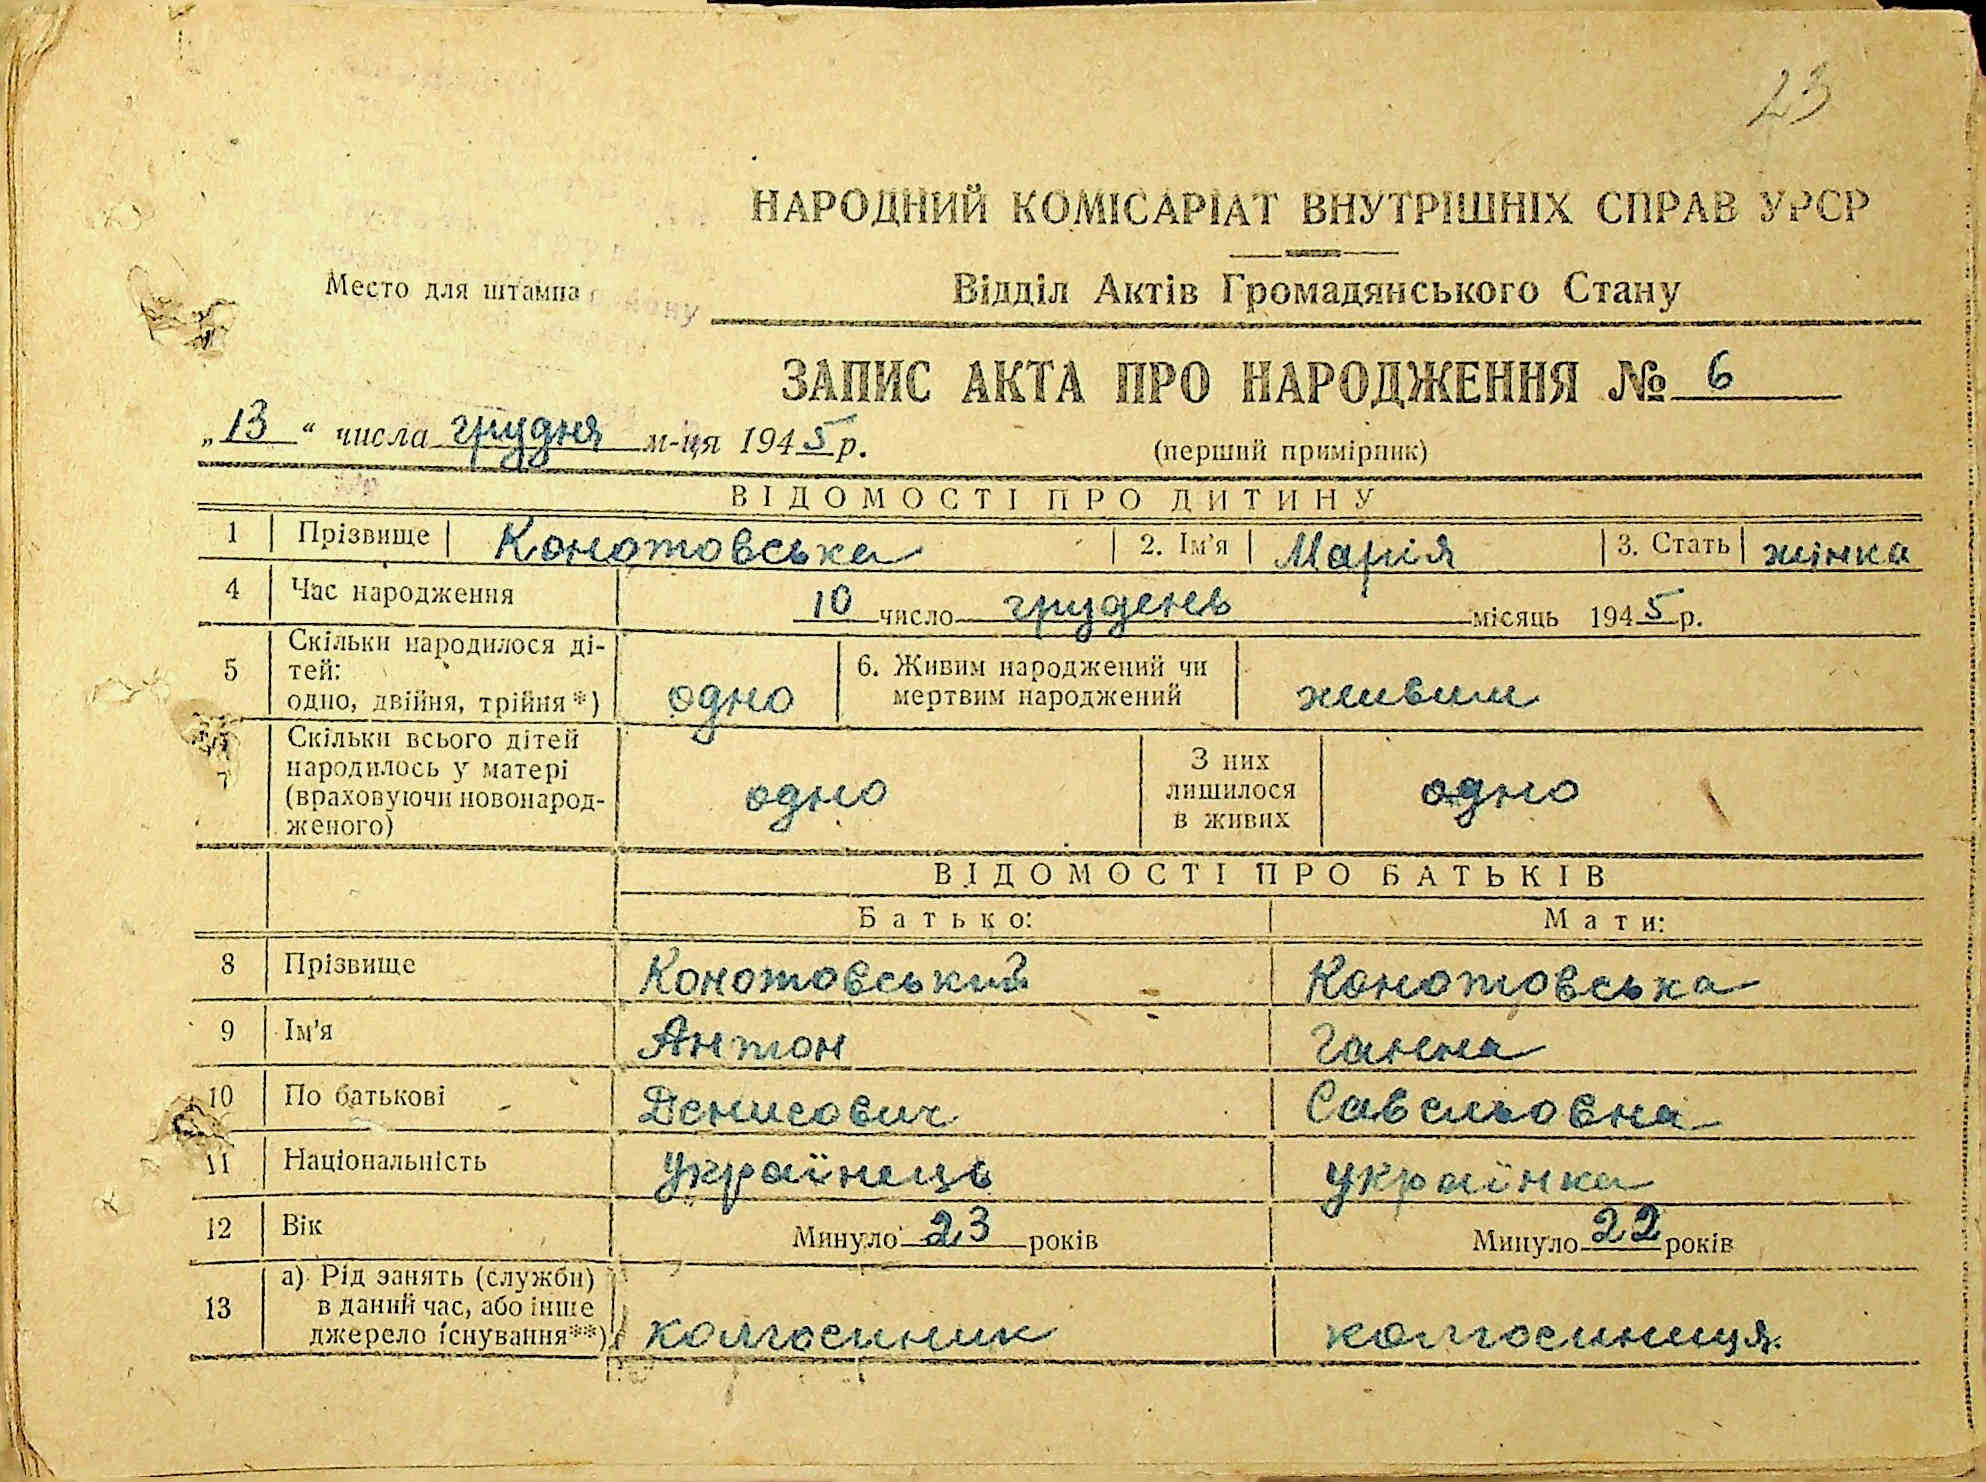 23
НАРОДНИЙ КОМІСАРІАТ ВНУТРІШНІХ СПРАВ УРСР
Место для штампа
Відділ Актів Громадянського Стану
ЗАПИС АКТА ПРО НАРОДЖЕННЯ № 6
„13“ числа грудня м-ця 1945 р.
(перший примірник)
ВІДОМОСТІ ПРО ДИТИНУ
1 Прізвище Конотовська 2. Ім'я Марія 3. Стать жінка
4 Час народження 10 число грудень місяць 1945 р.
5 Скільки народилося ді-
тей:
одно, двійня, трійня*) одно 6. Живим народжений чи
мертвим народжений живим
7 Скільки всього дітей
народилось у матері
(враховуючи новонарод-
женого) одно З них
лишилося
в живих одно
ВІДОМОСТІ ПРО БАТЬКІВ
Батько: Мати:
8 Прізвище Конотовський Конотовська
9 Ім'я Антон Ганна
10 По батькові Денисович Савельовна
11 Національність українець українка
12 Вік Минуло 23 років Минуло 22 років
13 а) Рід занять (служби)
в даний час, або інше
джерело існування**) колгоспник колгоспниця.